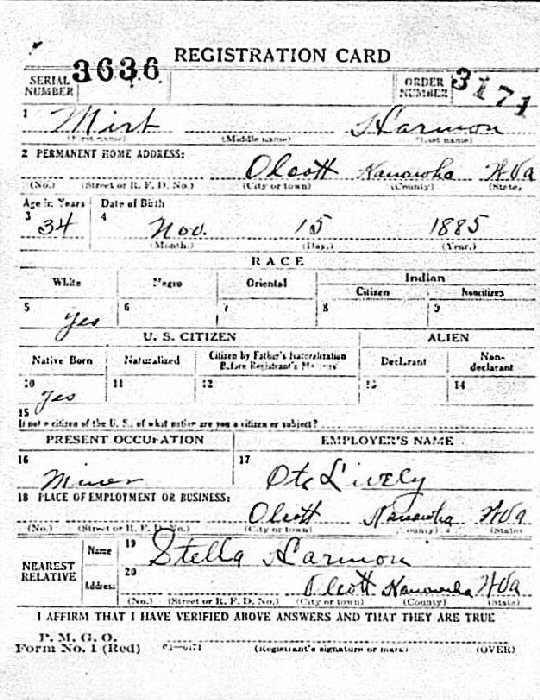 REGISTRATION CARD
SERIAL NUMBER 3636 ORDER NUMBER 3171
1 Mirt Harmon
(First name) (Middle name) (Last name)
2 PERMANENT HOME ADDRESS:
Olcott Kanawha W Va
(No.) (Street or R. F. D. No.) (City or town) (County) (State)
Age in Years Date of Birth
3 34 4 Nov. 15 1885
(Month.) (Day.) (Year.)
RACE
White Negro Oriental Indian
Citizen Noncitizen
5 Yes 6 7 8 9
U. S. CITIZEN ALIEN
Native Born Naturalized Citizen by Father's Naturalization Before Registrant's Majority Declarant Non-declarant
10 Yes 11 12 13 14
15
If not a citizen of the U. S., of what nation are you a citizen or subject?
PRESENT OCCUPATION EMPLOYER'S NAME
16 Miner 17 Ote Lively
18 PLACE OF EMPLOYMENT OR BUSINESS:
Olcott Kanawha W Va
(No.) (Street or R. F. D. No.) (City or town) (County) (State)
NEAREST RELATIVE
Name 19 Stella Harmon
Address 20 Olcott Kanawha W Va
(No.) (Street or R. F. D. No.) (City or town) (County) (State)
I AFFIRM THAT I HAVE VERIFIED ABOVE ANSWERS AND THAT THEY ARE TRUE
P. M. G. O.
Form No. 1 (Red) (Registrant's signature or mark) (OVER)